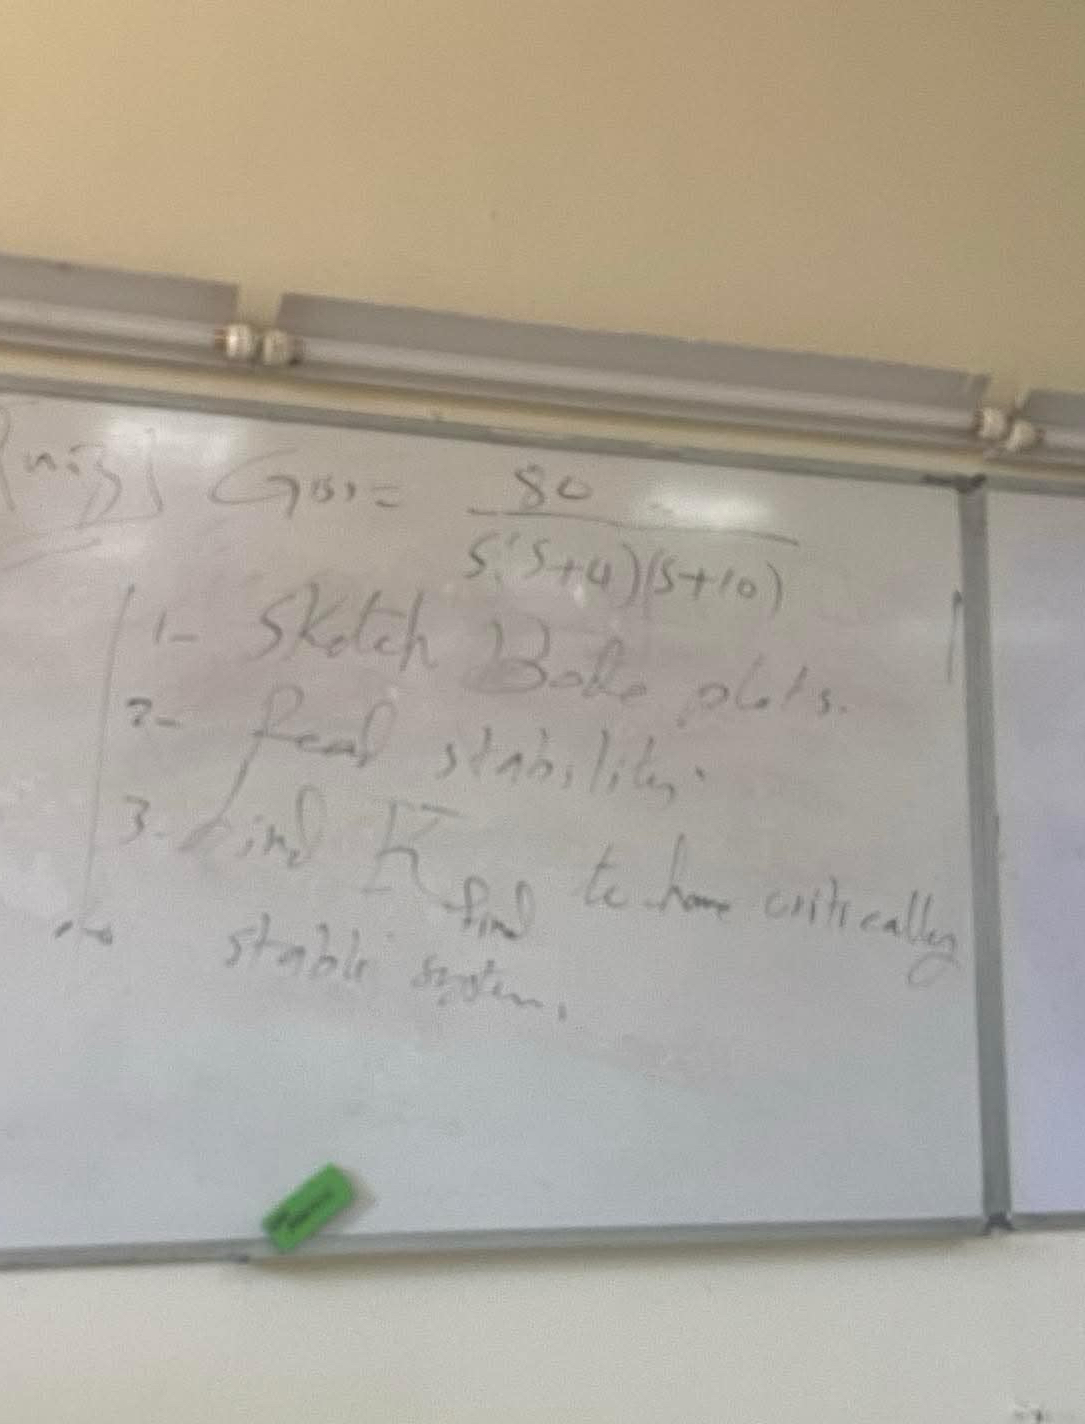 G(s) = 80
S(S+4)(S+10)
1- Sketch Bode plots.
2- find stability.
3- find K final to have critically
stable system.